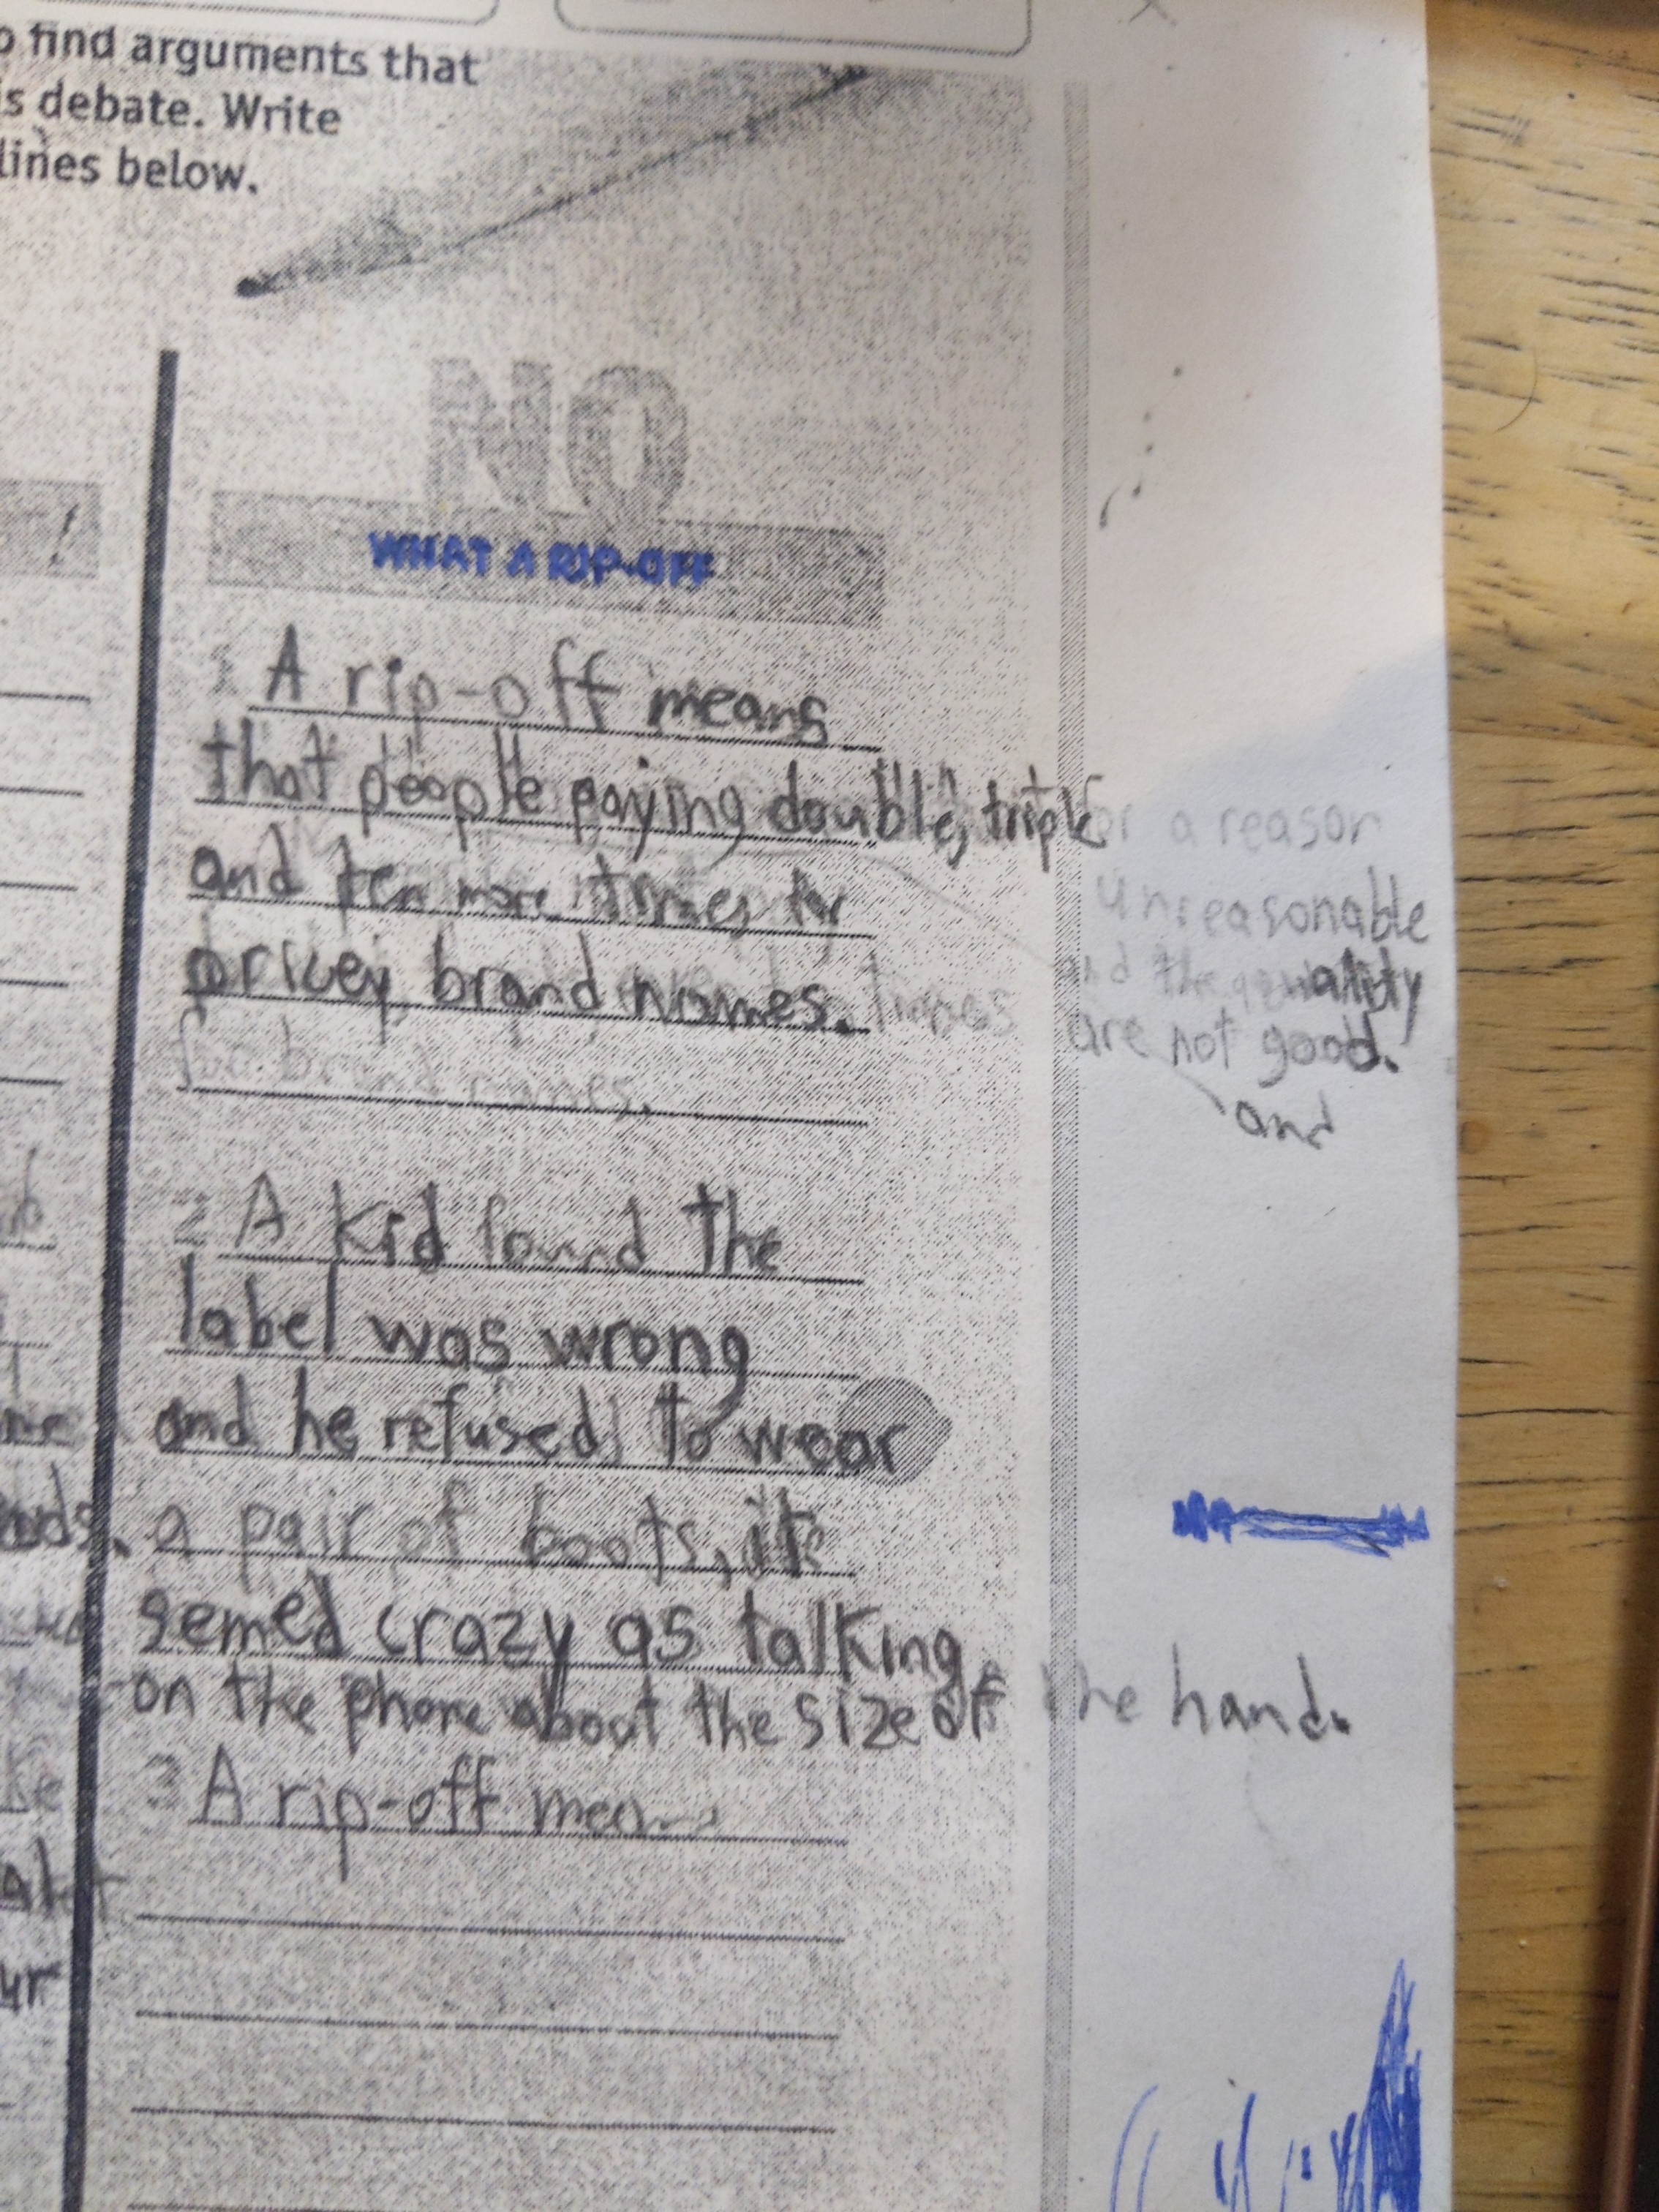 find arguments that
is debate. Write
lines below.
NO
WHAT A RIP-OFF
1 A rip-off means
that people paying double, triple
and ten more times for
pricey brand names.
for brand names.
a reason
unreasonable
and the quality
are not good.
and
2 A kid found the
label was wrong
and he refused to wear
a pair of boots, its
semed crazy as talking
on the phone about the size of the hand.
3 A rip-off mean